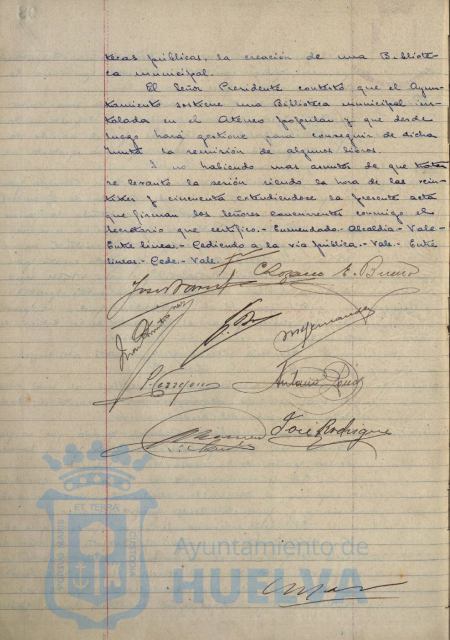 tecas públicas, la creación de una Bibliote-
ca municipal.
El Señor Presidente contestó que el Ayun-
tamiento sostiene una Biblioteca municipal ins-
talada en el Ateneo popular y que desde
luego hará gestione para conseguir de dicha
Junta la remisión de algunos libros.
I no habiendo mas asuntos de que tratar
se levantó la sesión siendo la hora de las vein-
titres y cincuenta extendiendose la presente acta
que firman los señores concurrentes conmigo el
Secretario que certifico.- Enmendado.- Alcaldia.- Vale.-
Entre lineas.- Cediendo a la via pública.- Vale.- Entre
lineas.- Cede.- Vale.
E. Bueno
M. Hernandez
Antonio
José Rodriguez
ET TERRA
PORTUS MARIS
CUSTODIA
Ayuntamiento de
HUELVA